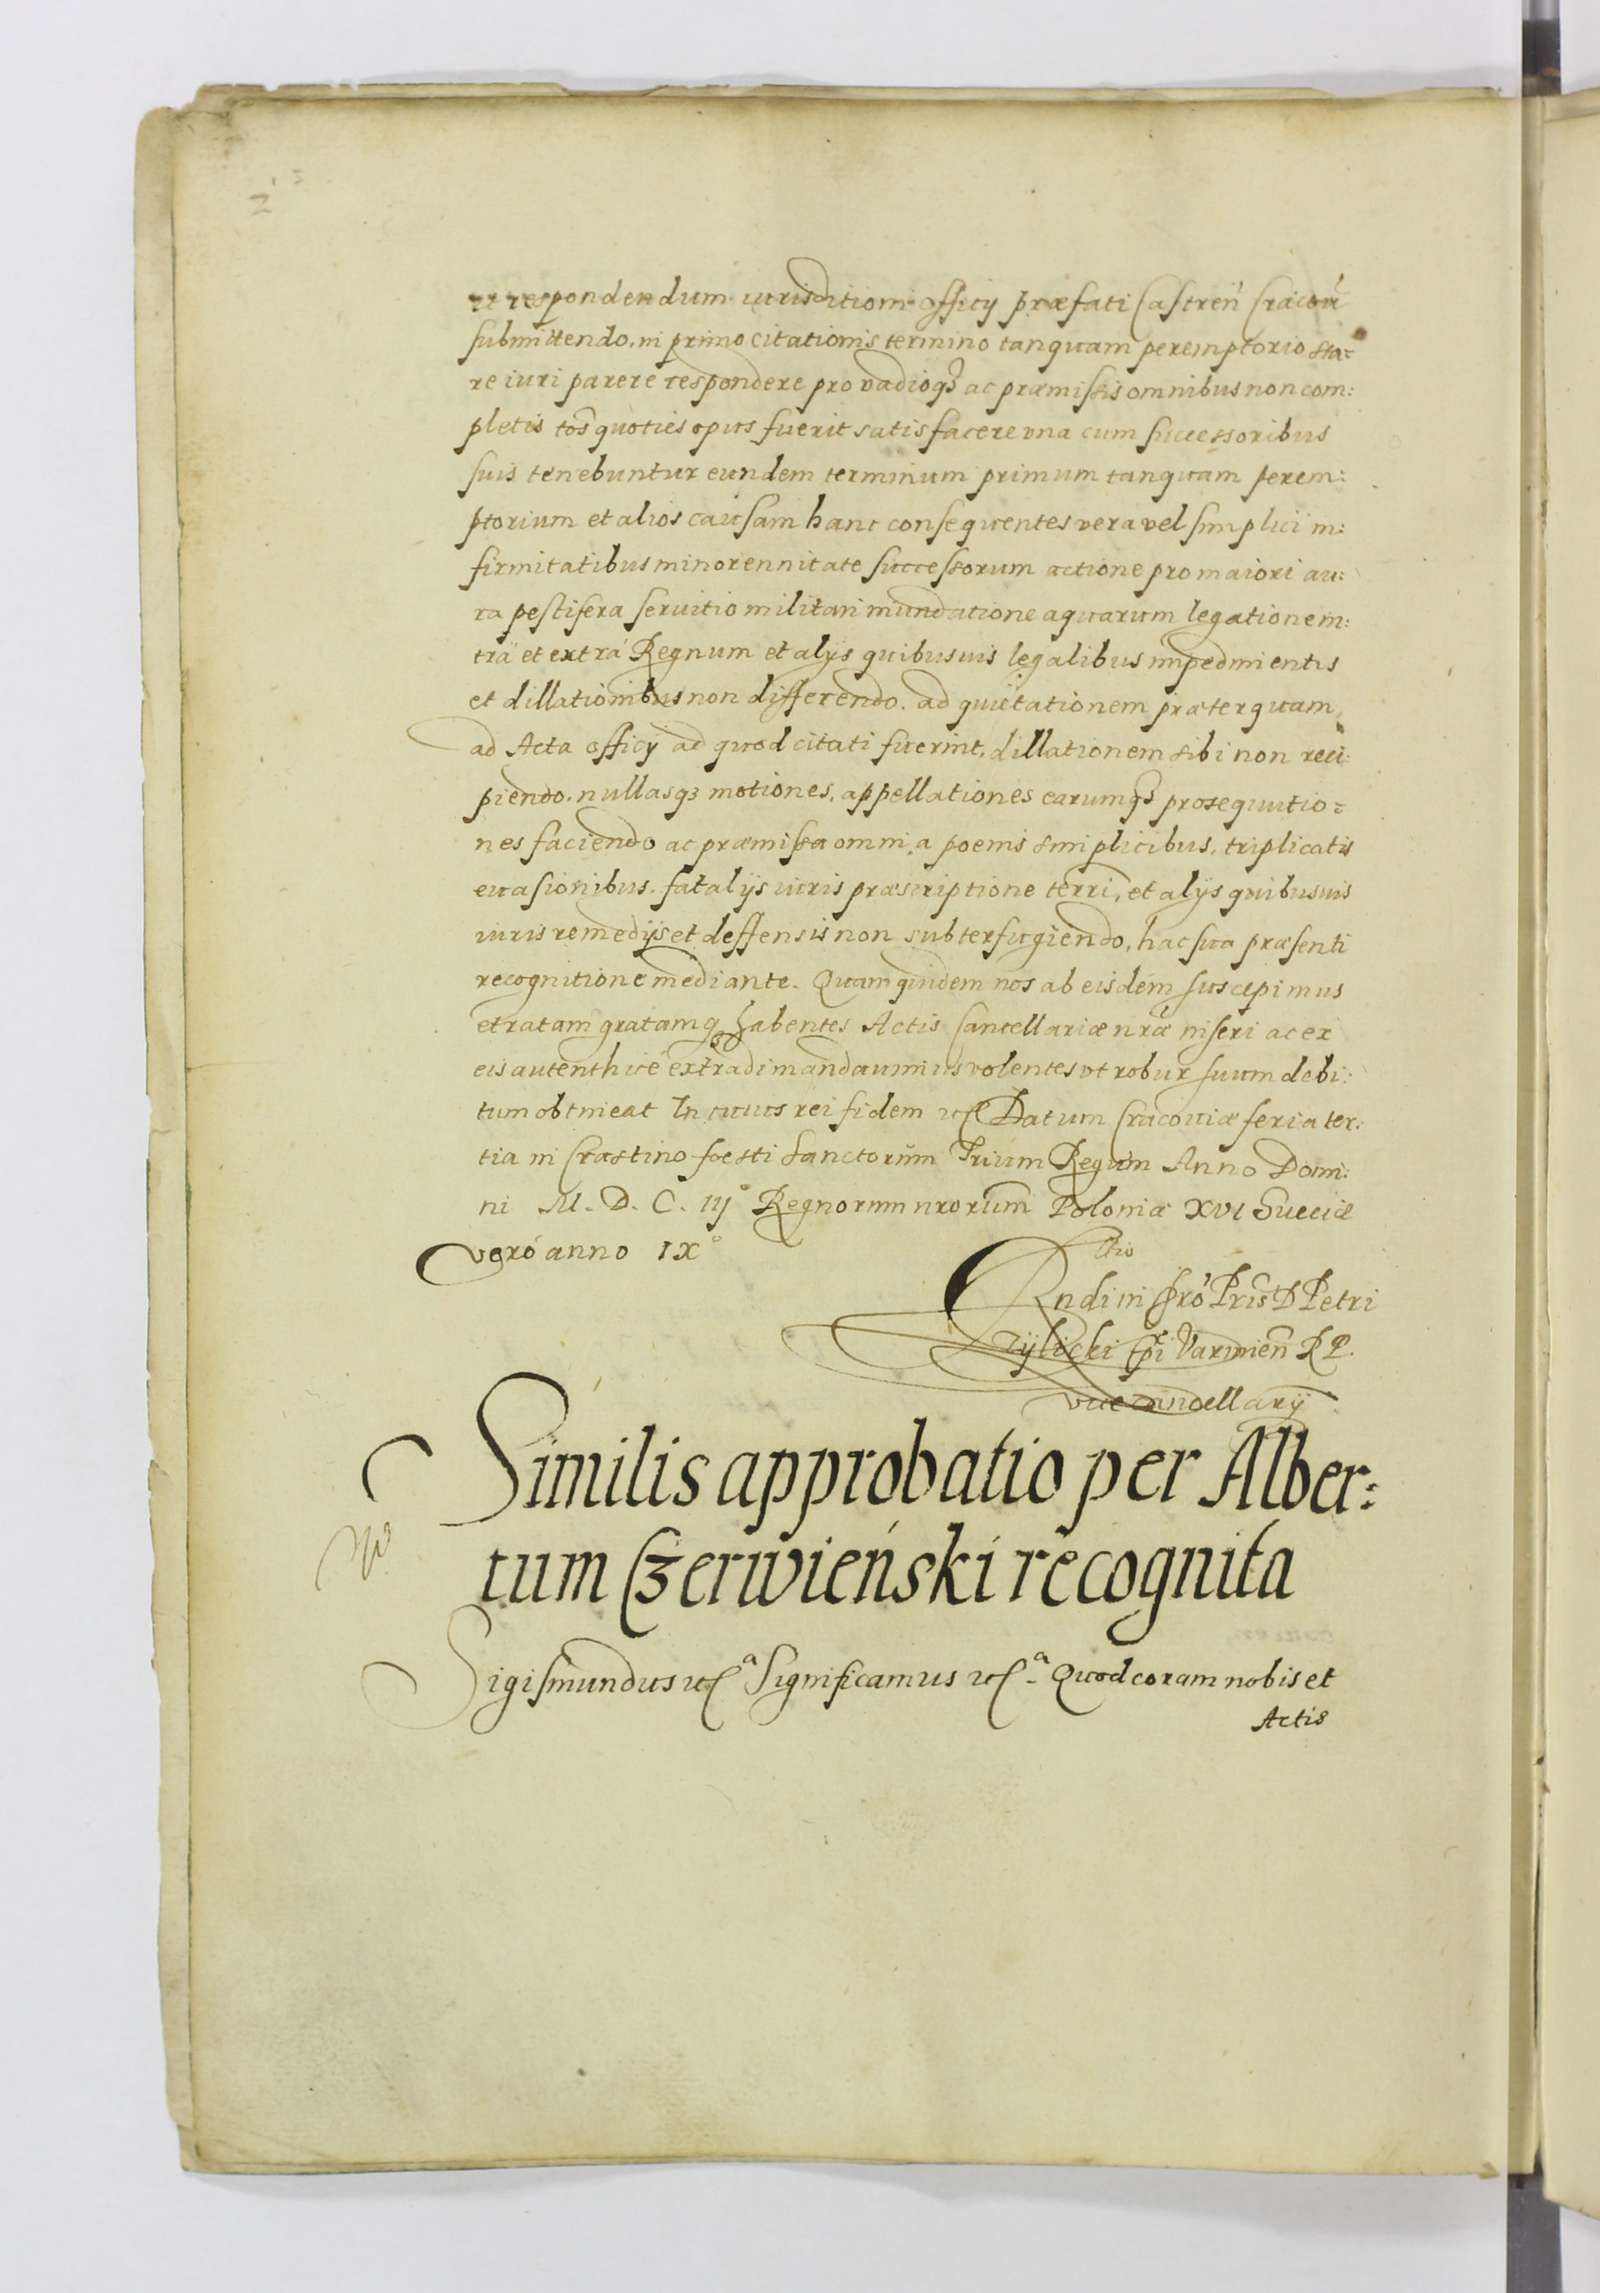 et respondendum iurisditioni officy præfati Castren Cracou
submittendo, in primo citationis termino tanquam peremptorio sta-
re iuri parere respondere pro vadioq3 ac præmissis omnibus non com:
pletis tos quoties opus fuerit satisfacere vna cum successoribus
suis tenebuntur eundem terminum primum tanquam perem:
ptorium et alios causam hanc consequentes vera vel simplici in:
firmitatibus minorennitate successorum actione pro maiori au:
ra pestifera seruitio militari inundatione aquarum legatione in:
trà et extrà Regnum et alijs quibusuis legalibus impedimientis
et dillationibus non differendo. ad quietationem præterquam
ad Acta officy ad quod citati fuerint, dillationem sibi non reci:
piendo. nullasq3 motiones, appellationes earumq3 prosequutio=
nes faciendo ac præmissa omnia poenis simplicibus, triplicatis
euasionibus. fatalijs iuris præscriptione terri, et alijs quibusuis
iuris remedijs et deffensis non subterfugiendo, hac sua præsenti
recognitione mediante. Quam quidem nos ab eisdem suscepimus
et ratam gratamq3 habentes Actis Cancellariæ nræ inseri ac ex
eis autenthicè extradi mandauimus volentes vt robur suum debi:
tum obtineat In cuius rei fidem etc Datum Cracouiæ feria ter:
tia in Crastino foesti Sanctorum Trium Regum Anno Domi:
ni M. D. C. iij° Regnorum nrorum Poloniæ XVI Sueciæ
verò anno IX°
Rndi in Chro Pris D Petri
Tylicki Epi Varmien R P.
vicecancellarij
Similis approbatio per Alber:
tum Czerwieński recognita
Sigismundus etc a Significamus etc a Quod coram nobis et
Actis